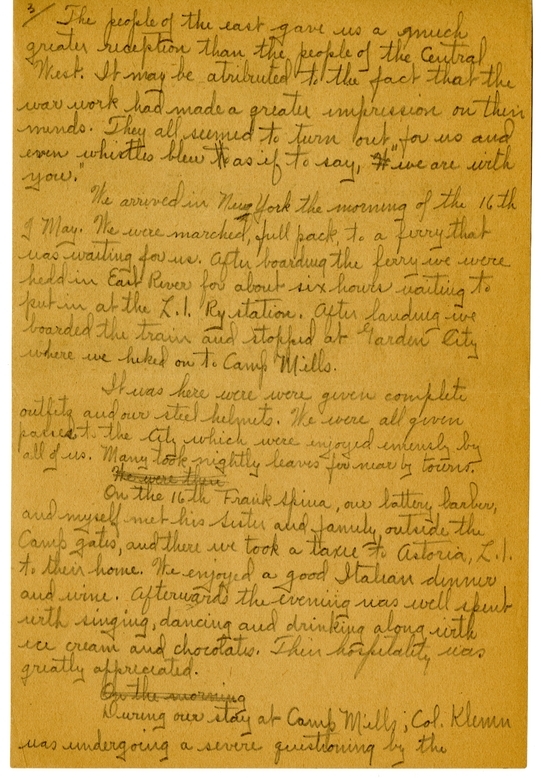 3/ The people of the east gave us a gmuch
greater reception than the people of the Central
West. It may be atributed to the fact that the
war work had made a greater impression on their
minds. They all seemed to turn out for us and
even whistles blew as if to say, "we are with
you."
We arrived in New York the morning of the 16th
of May. We were marched, full pack, to a ferry that
was waiting for us. After boarding the ferry we were
held in East River for about six hours waiting to
put in at the L.I. Ry station. After landing we
boarded the train and stopped at Garden City
where we hiked on to Camp Mills.
It was here were were given complete
outfits and our steel helmets. We were all given
passes to the City which were enjoyed imensly by
all of us. Many took nightly leaves for near by towns.
We were then
On the 16th Frank Spina, our battery barber,
and myself met his sister and family, outside the
Camp gates, and there we took a taxie to Astoria, L.I.
to their home. We enjoyed a good Italian dinner
and wine. Afterwards the evening was well spent
with singing, dancing and drinking along with
ice cream and chocolates. Their hospitality was
greatly appreciated.
On the morning
During our stay at Camp Mills, Col. Klemm
was undergoing a severe questioning by the